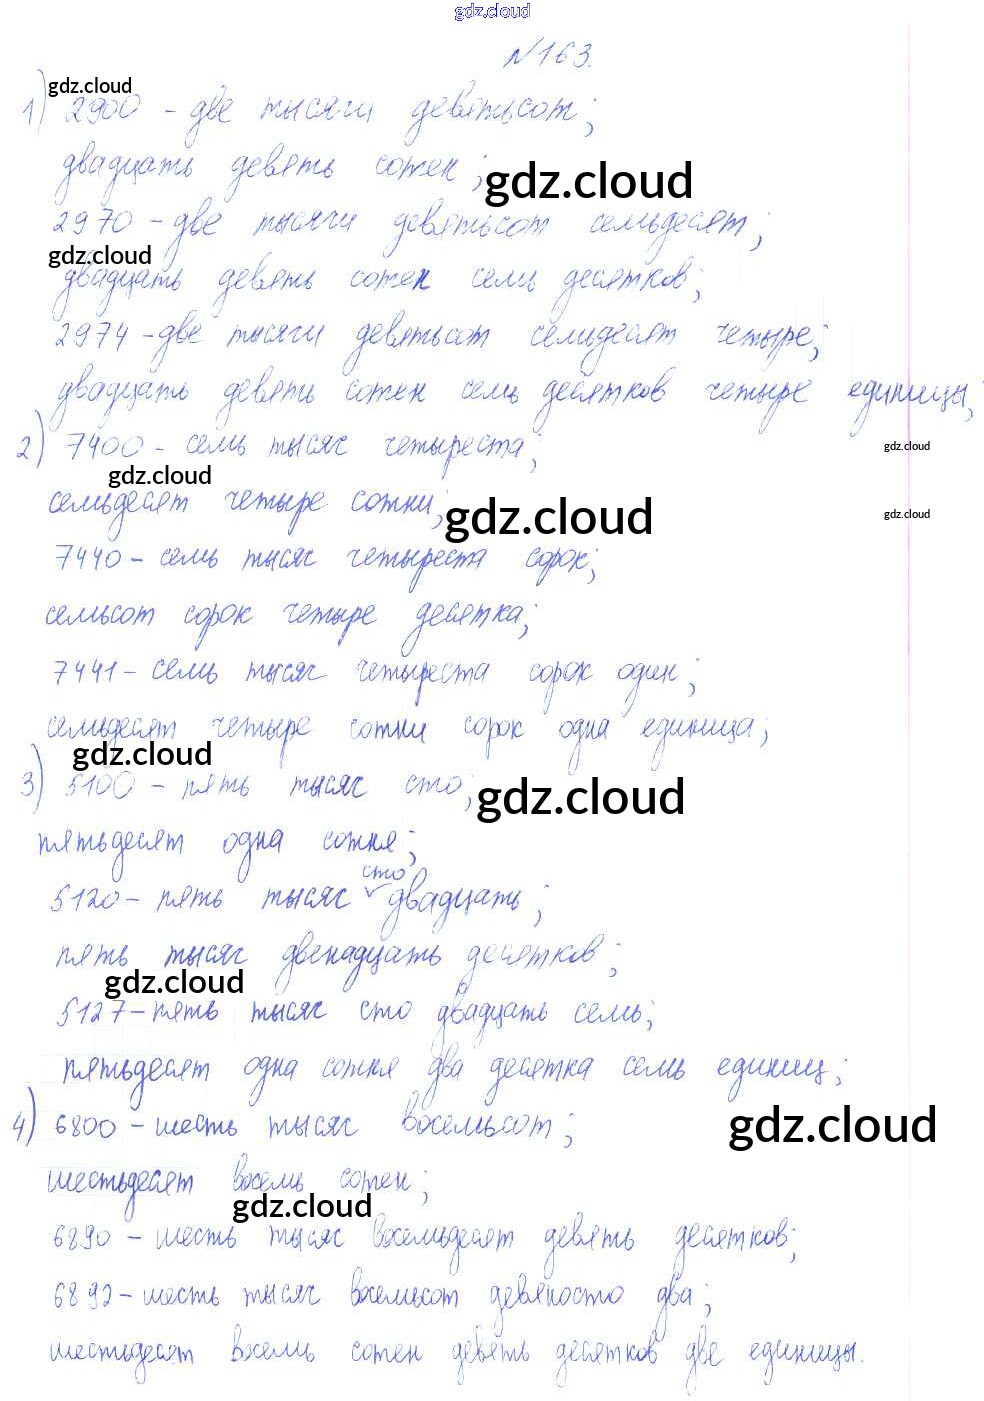 gdz.cloud
№163.
gdz.cloud
1) 2900 - две тысячи девятьсот;
двадцать девять сотен;
gdz.cloud
2970 - две тысячи девятьсот семьдесят;
gdz.cloud
двадцать девять сотен семь десятков;
2974 - две тысячи девятьсот семьдесят четыре;
двадцать девять сотен семь десятков четыре единицы;
2) 7400 - семь тысяч четыреста;
gdz.cloud
gdz.cloud
семьдесят четыре сотни;
gdz.cloud
gdz.cloud
7440 - семь тысяч четыреста сорок;
семьсот сорок четыре десятка;
7441 - семь тысяч четыреста сорок один;
семьдесят четыре сотни сорок одна единица;
gdz.cloud
3) 5100 - пять тысяч сто;
gdz.cloud
пятьдесят одна сотня;
сто
5120 - пять тысяч двадцать;
пять тысяч двенадцать десятков;
gdz.cloud
5127 - пять тысяч сто двадцать семь;
пятьдесят одна сотня два десятка семь единиц;
4) 6800 - шесть тысяч восемьсот;
gdz.cloud
шестьдесят восемь сотен;
gdz.cloud
6890 - шесть тысяч восемьдесят девять десятков;
6892 - шесть тысяч восемьсот девяносто два;
шестьдесят восемь сотен девять десятков две единицы.